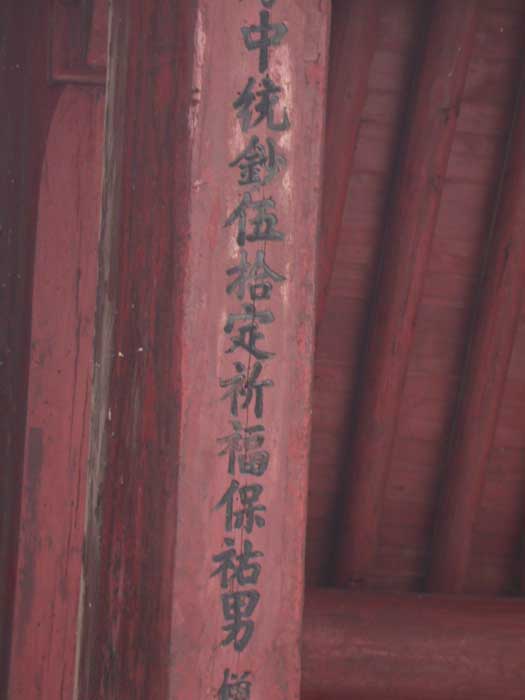 中統鈔伍拾定祈福保祐男